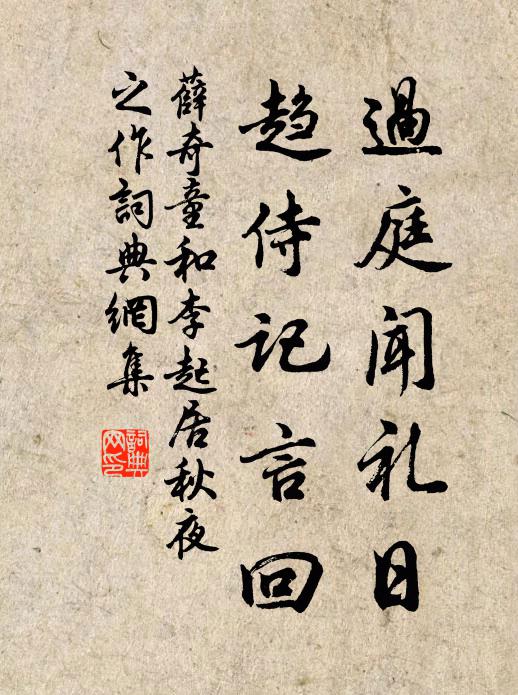 過庭闻礼日
趋侍记言回
薛奇童和李起居秋夜
之作詞典網集
詞典
网印